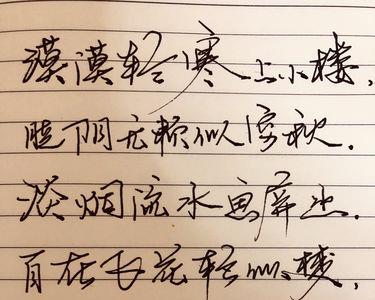 漠漠轻寒上小楼,
晓阴无赖似穷秋.
淡烟流水画屏幽.
自在飞花轻似梦,